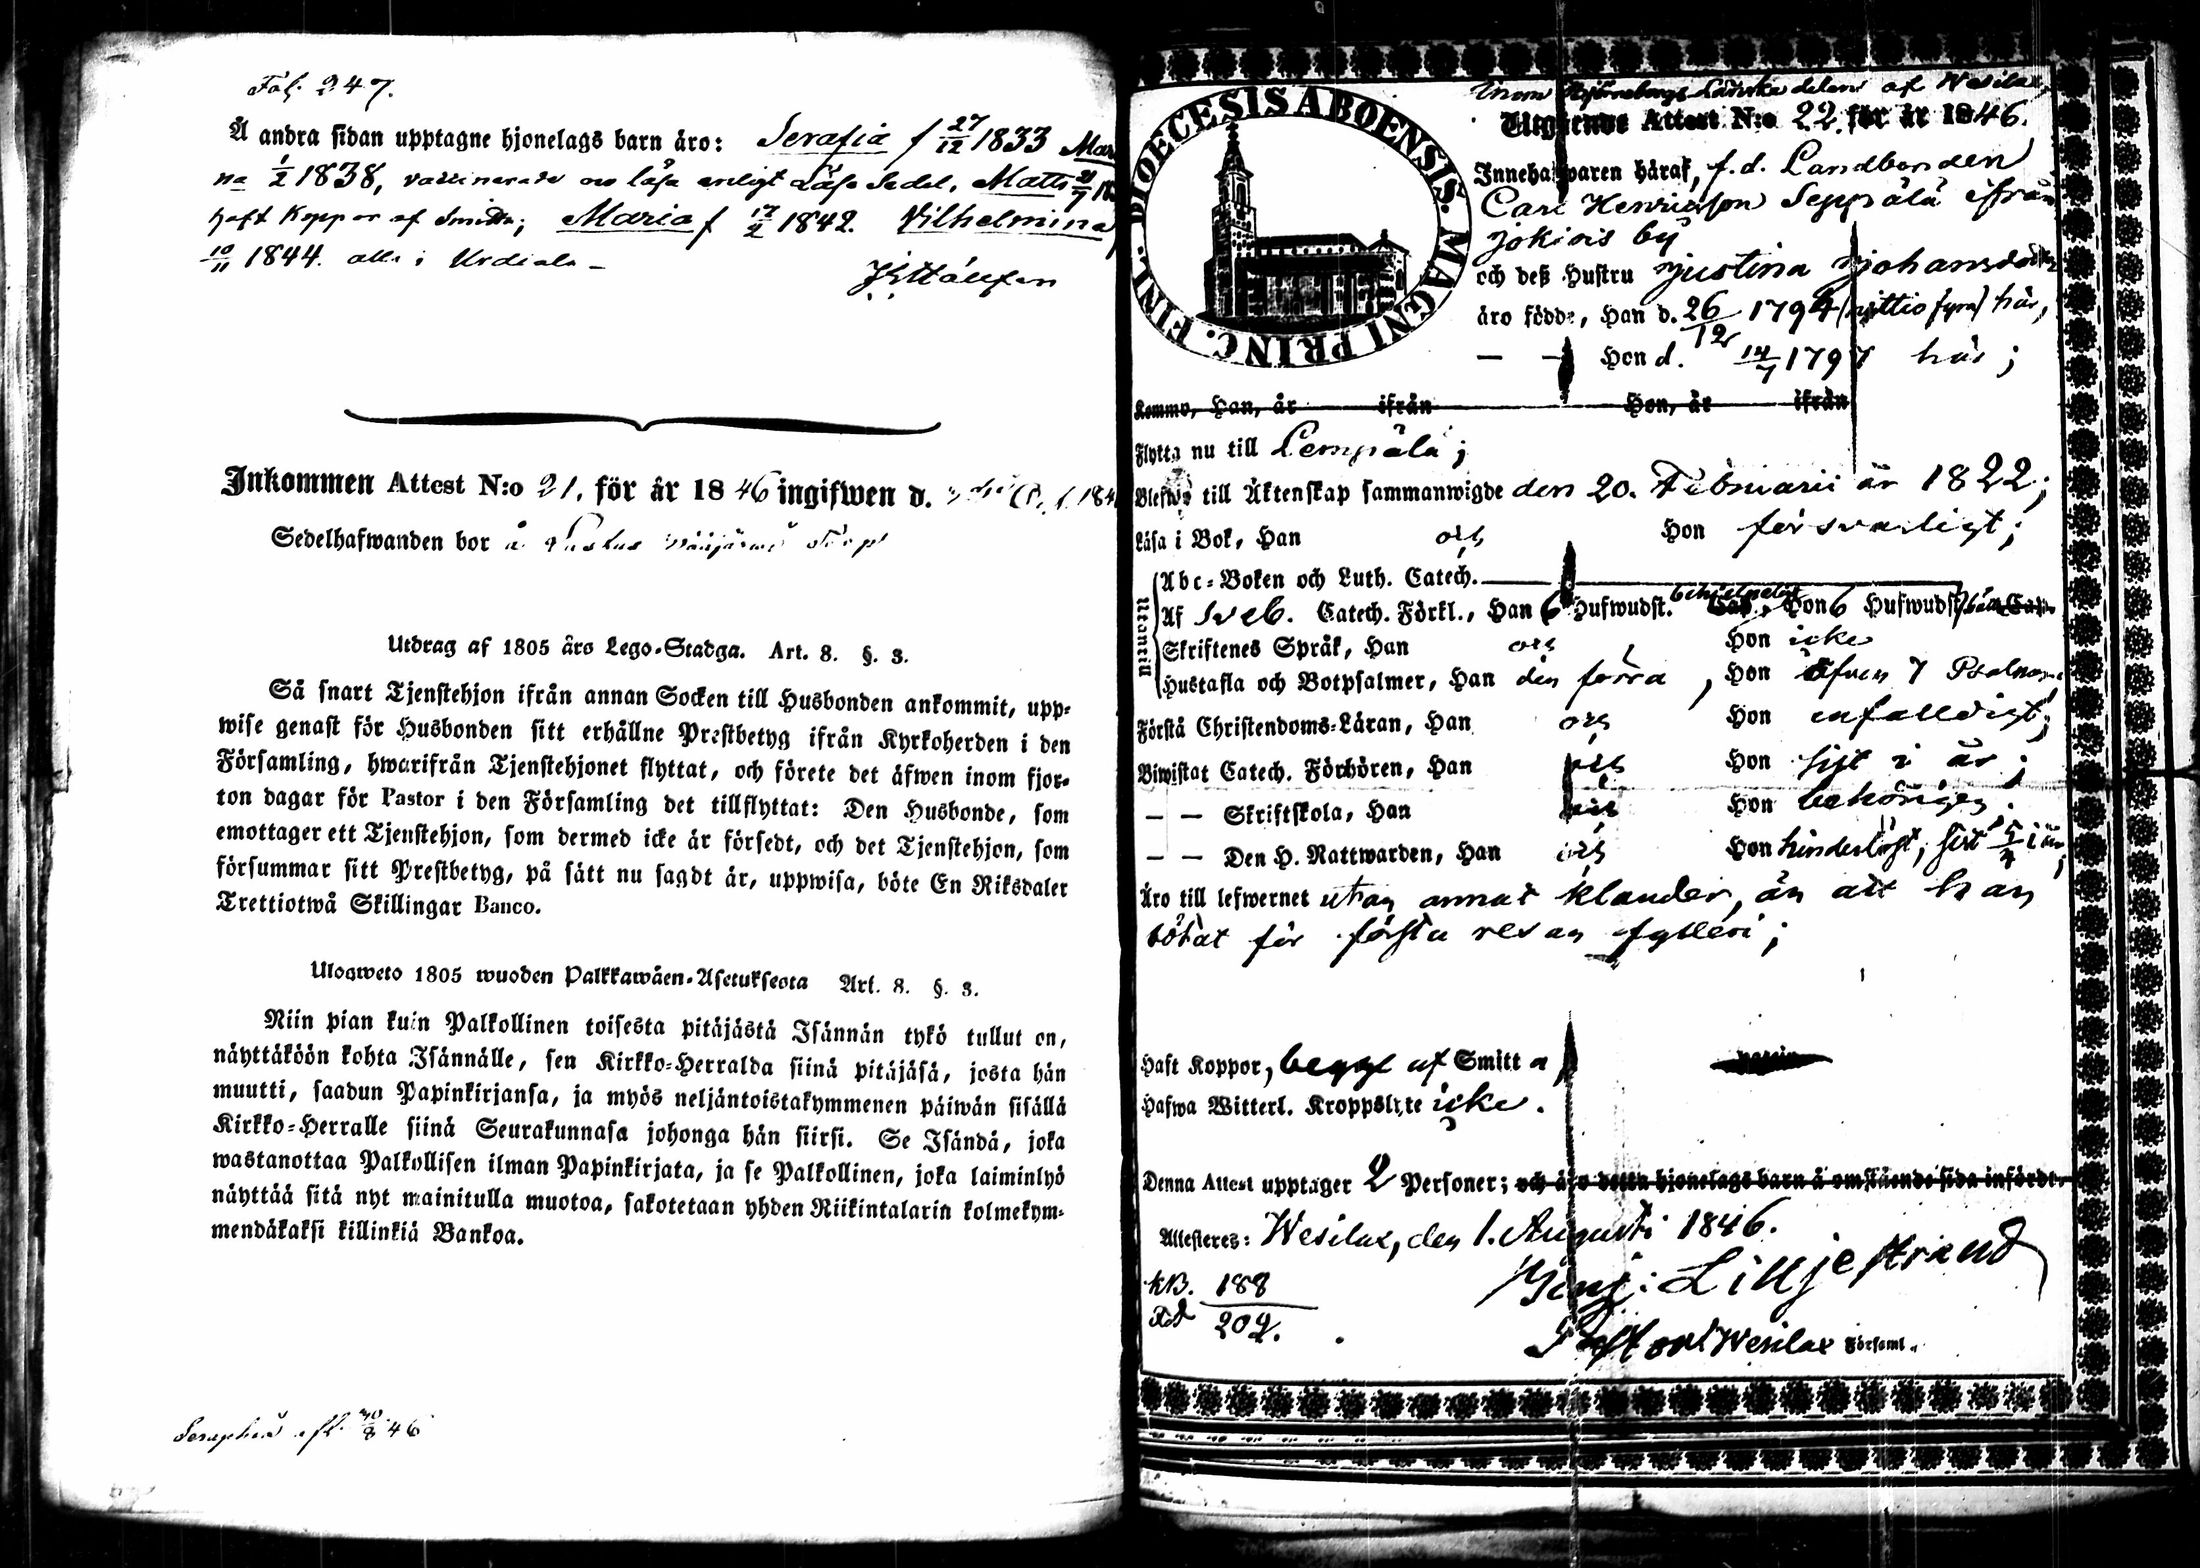 Fol. 247.
Å andra sidan upptagne hjonelags barn äro: Serafia f 27/12 1833 Mari
na 1/2 1838, vaccinerade o läsa enligt Läse Sedel. Matts
haft Koppor af Smitta; Maria f 17/2 1842. Vilhelmina f
10/11 1844. alla i Urdiala –
Inkommen Attest N:o 21. för år 1846 ingifwen d.
Sedelhafwanden bor å
Utdrag af 1805 års Lego-Stadga. Art. 8. §. 3.
Så snart Tjenstehjon ifrån annan Socken till Husbonden ankommit, upp-
wise genast för Husbonden sitt erhållne Prestbetyg ifrån Kyrkoherden i den
Församling, hwarifrån Tjenstehjonet flyttat, och förete det äfwen inom fjor-
ton dagar för Pastor i den Församling det tillflyttat: Den Husbonde, som
emottager ett Tjenstehjon, som dermed icke är försedt, och det Tjenstehjon, som
försummar sitt Prestbetyg, på sätt nu sagdt är, uppwisa, böte En Riksdaler
Trettiotwå Skillingar Banco.
Ulosweto 1805 wuoden Palkkawäen-Asetuksesta Art. 8. §. 3.
Niin pian kuin Palkollinen toisesta pitäjästä Isännän tykö tullut on,
näyttäköön kohta Isännälle, sen Kirkko-Herralda siinä pitäjäsä, josta hän
muutti, saadun Papinkirjansa, ja myös neljäntoistakymmenen päiwän sisällä
Kirkko-Herralle siinä Seurakunnasa johonga hän siirsi. Se Isändä, joka
wastanottaa Palkollisen ilman Papinkirjata, ja se Palkollinen, joka laiminlyö
näyttää sitä nyt mainitulla muotoa, sakotetaan yhden Riikintalarin kolmekym-
mendäkaksi killinkiä Bankoa.
DIOECESIS ABOENSIS. MAGNI PRINC. FINL.
Inom Björneborgs Länska delen af Wesilax
Utgående Attest N:o 22. för år 1846.
Innehafwaren häraf, f.d. Landbonden
Carl Henricsson Seppälä ifrån
Jokiois by
och deß Hustru Justina Johansdotter
äro födde, Han d. 26/12 1794 (nittio fyra) här,
— — Hon d. 14/7 1797 här;
Komma, Han, år ifrån Hon, år ifrån
Flytta nu till Lempälä;
Blefwo till Äktenskap sammanwigde den 20. Februarii år 1822;
Läsa i Bok, Han och Hon försvarligt;
Utantill
Abc-Boken och Luth. Catech.
Af Sveb. Catech. Förkl., Han 6 Hufwudst. Hon 6 Hufwudst.
Skriftenes Språk, Han och Hon icke
Hustafla och Botpsalmer, Han den förra, Hon äfven 7 Psalmer
Förstå Christendoms-Läran, Han och Hon enfalldigt;
Biwistat Catech. Förhören, Han och Hon sist i år;
— — Skriftskola, Han och Hon behörigen.
— — Den H. Nattwarden, Han och Hon hinderlöst, sist 5/4 i år;
Äro till lefwernet utan annat klander, än att han
bötat för första resan fylleri;
Haft Koppor, begge af Smitta,
Hafwa Witterl. Kroppslyte icke.
Denna Attest upptager 2 Personer; och äro detta hjonelags barn å omstående sida införde.
Attesteres: Wesilax, den 1. Augusti 1846.
KB. 188
202.
Benj: Lilljestrand
Pastor i Wesilax Församl.